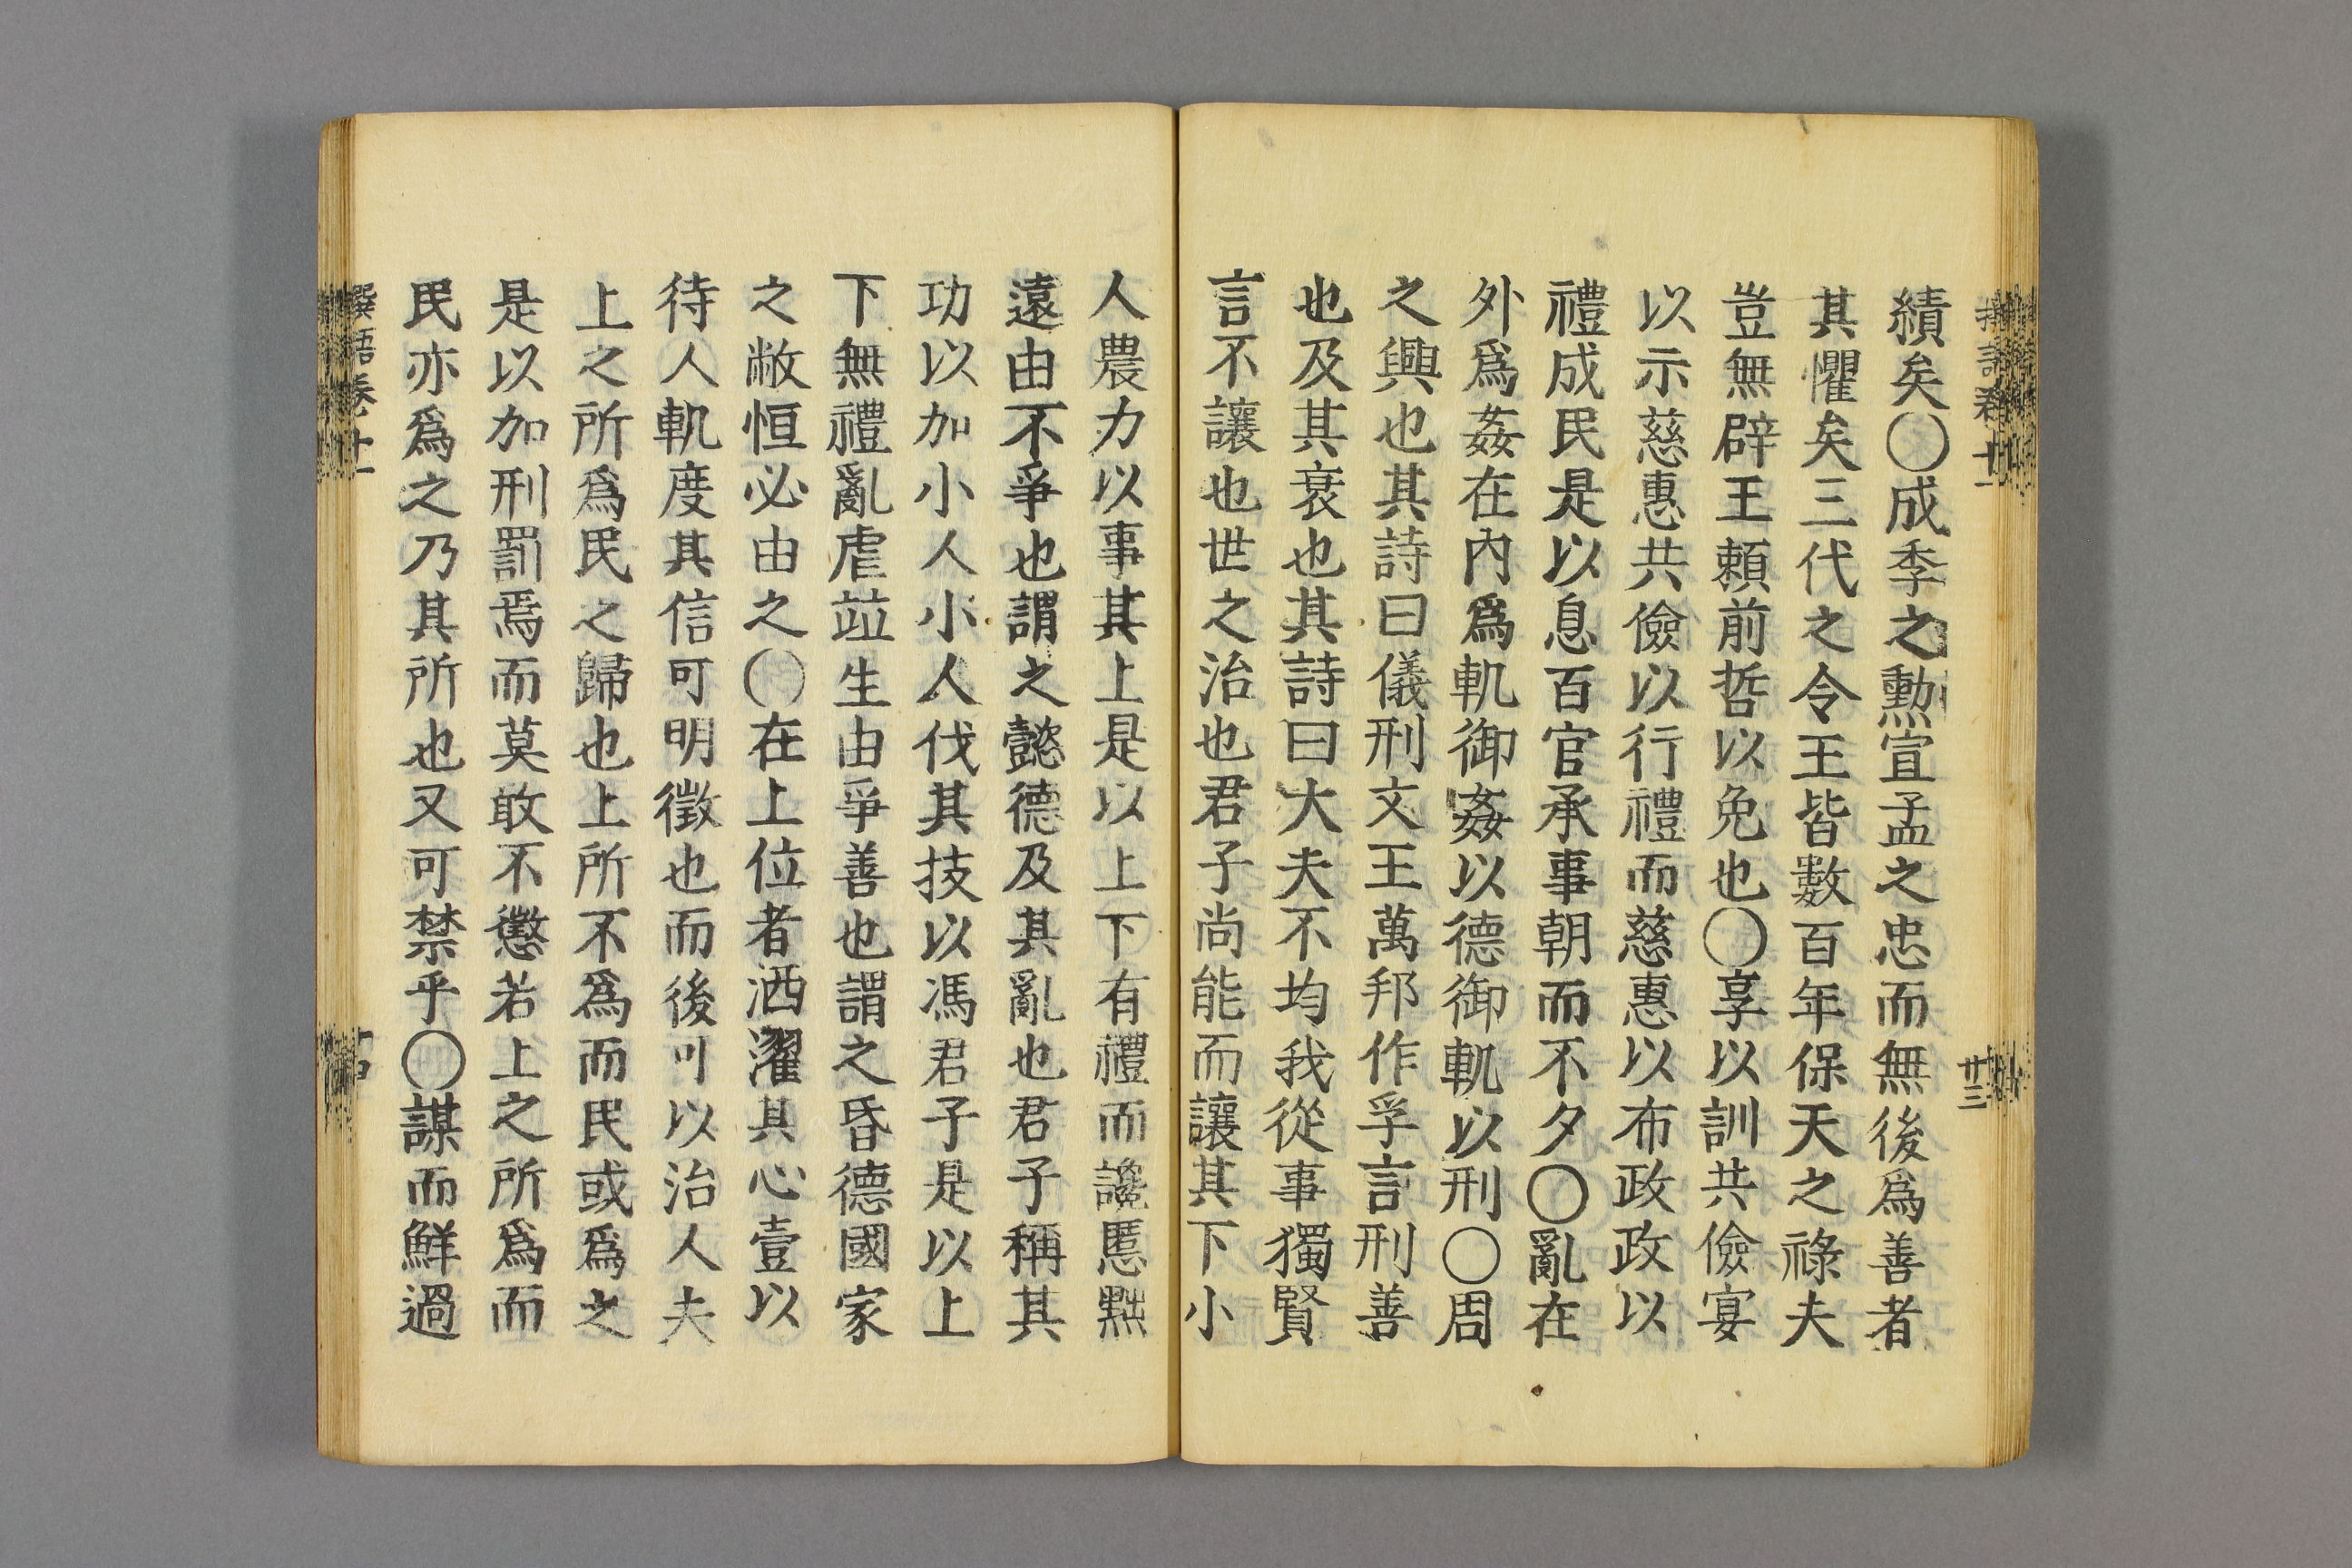 績矣〇成季之勲宣孟之忠而無後爲善者
其懼矣三代之令王皆數百年保天之祿夫
豈無辟王頼前哲以免也〇享以訓共儉宴
以示慈惠共儉以行禮而慈惠以布政政以
禮成民是以息百官承事朝而不夕〇亂在
外爲姦在内爲軌御姦以德御軌以刑〇周
之興也其詩曰儀刑文王萬邦作孚言刑善
也及其衰也其詩曰大夫不均我從事獨賢
言不讓也世之治也君子尚能而讓其下小
卅三
人農力以事其上是以上下有禮而讒慝黜
遠由不爭也謂之懿德及其亂也君子稱其
功以加小人小人伐其技以馮君子是以上
下無禮亂虐竝生由爭善也謂之昏德國家
之敝恒必由之〇在上位者洒濯其心壹以
待人軌度其信可明徵也而後可以治人夫
上之所爲民之歸也上所不爲而民或爲之
是以加刑罰焉而莫敢不懲若上之所爲而
民亦爲之乃其所也又可禁乎〇謀而鮮過
語卷廿一